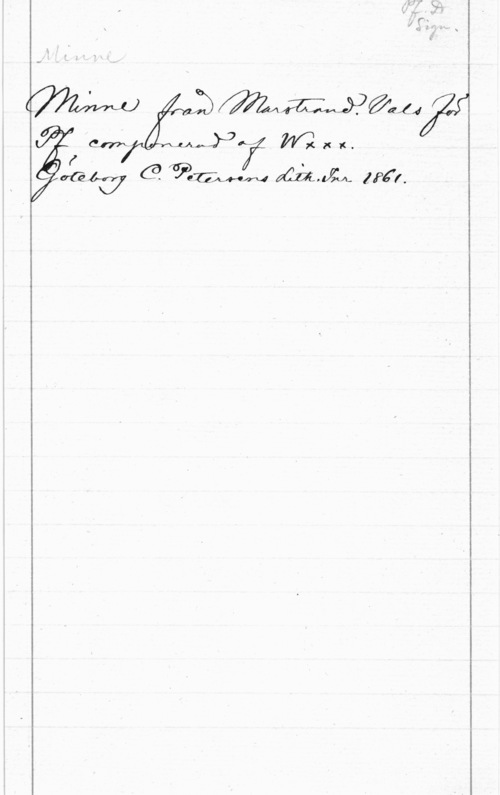 Pf. Dr
Sign.
Minne
Minne från Marstrand. Vals för
Pf componerad af Wxxx.
Göteborg C. Petersens Lith. Inr 1861.